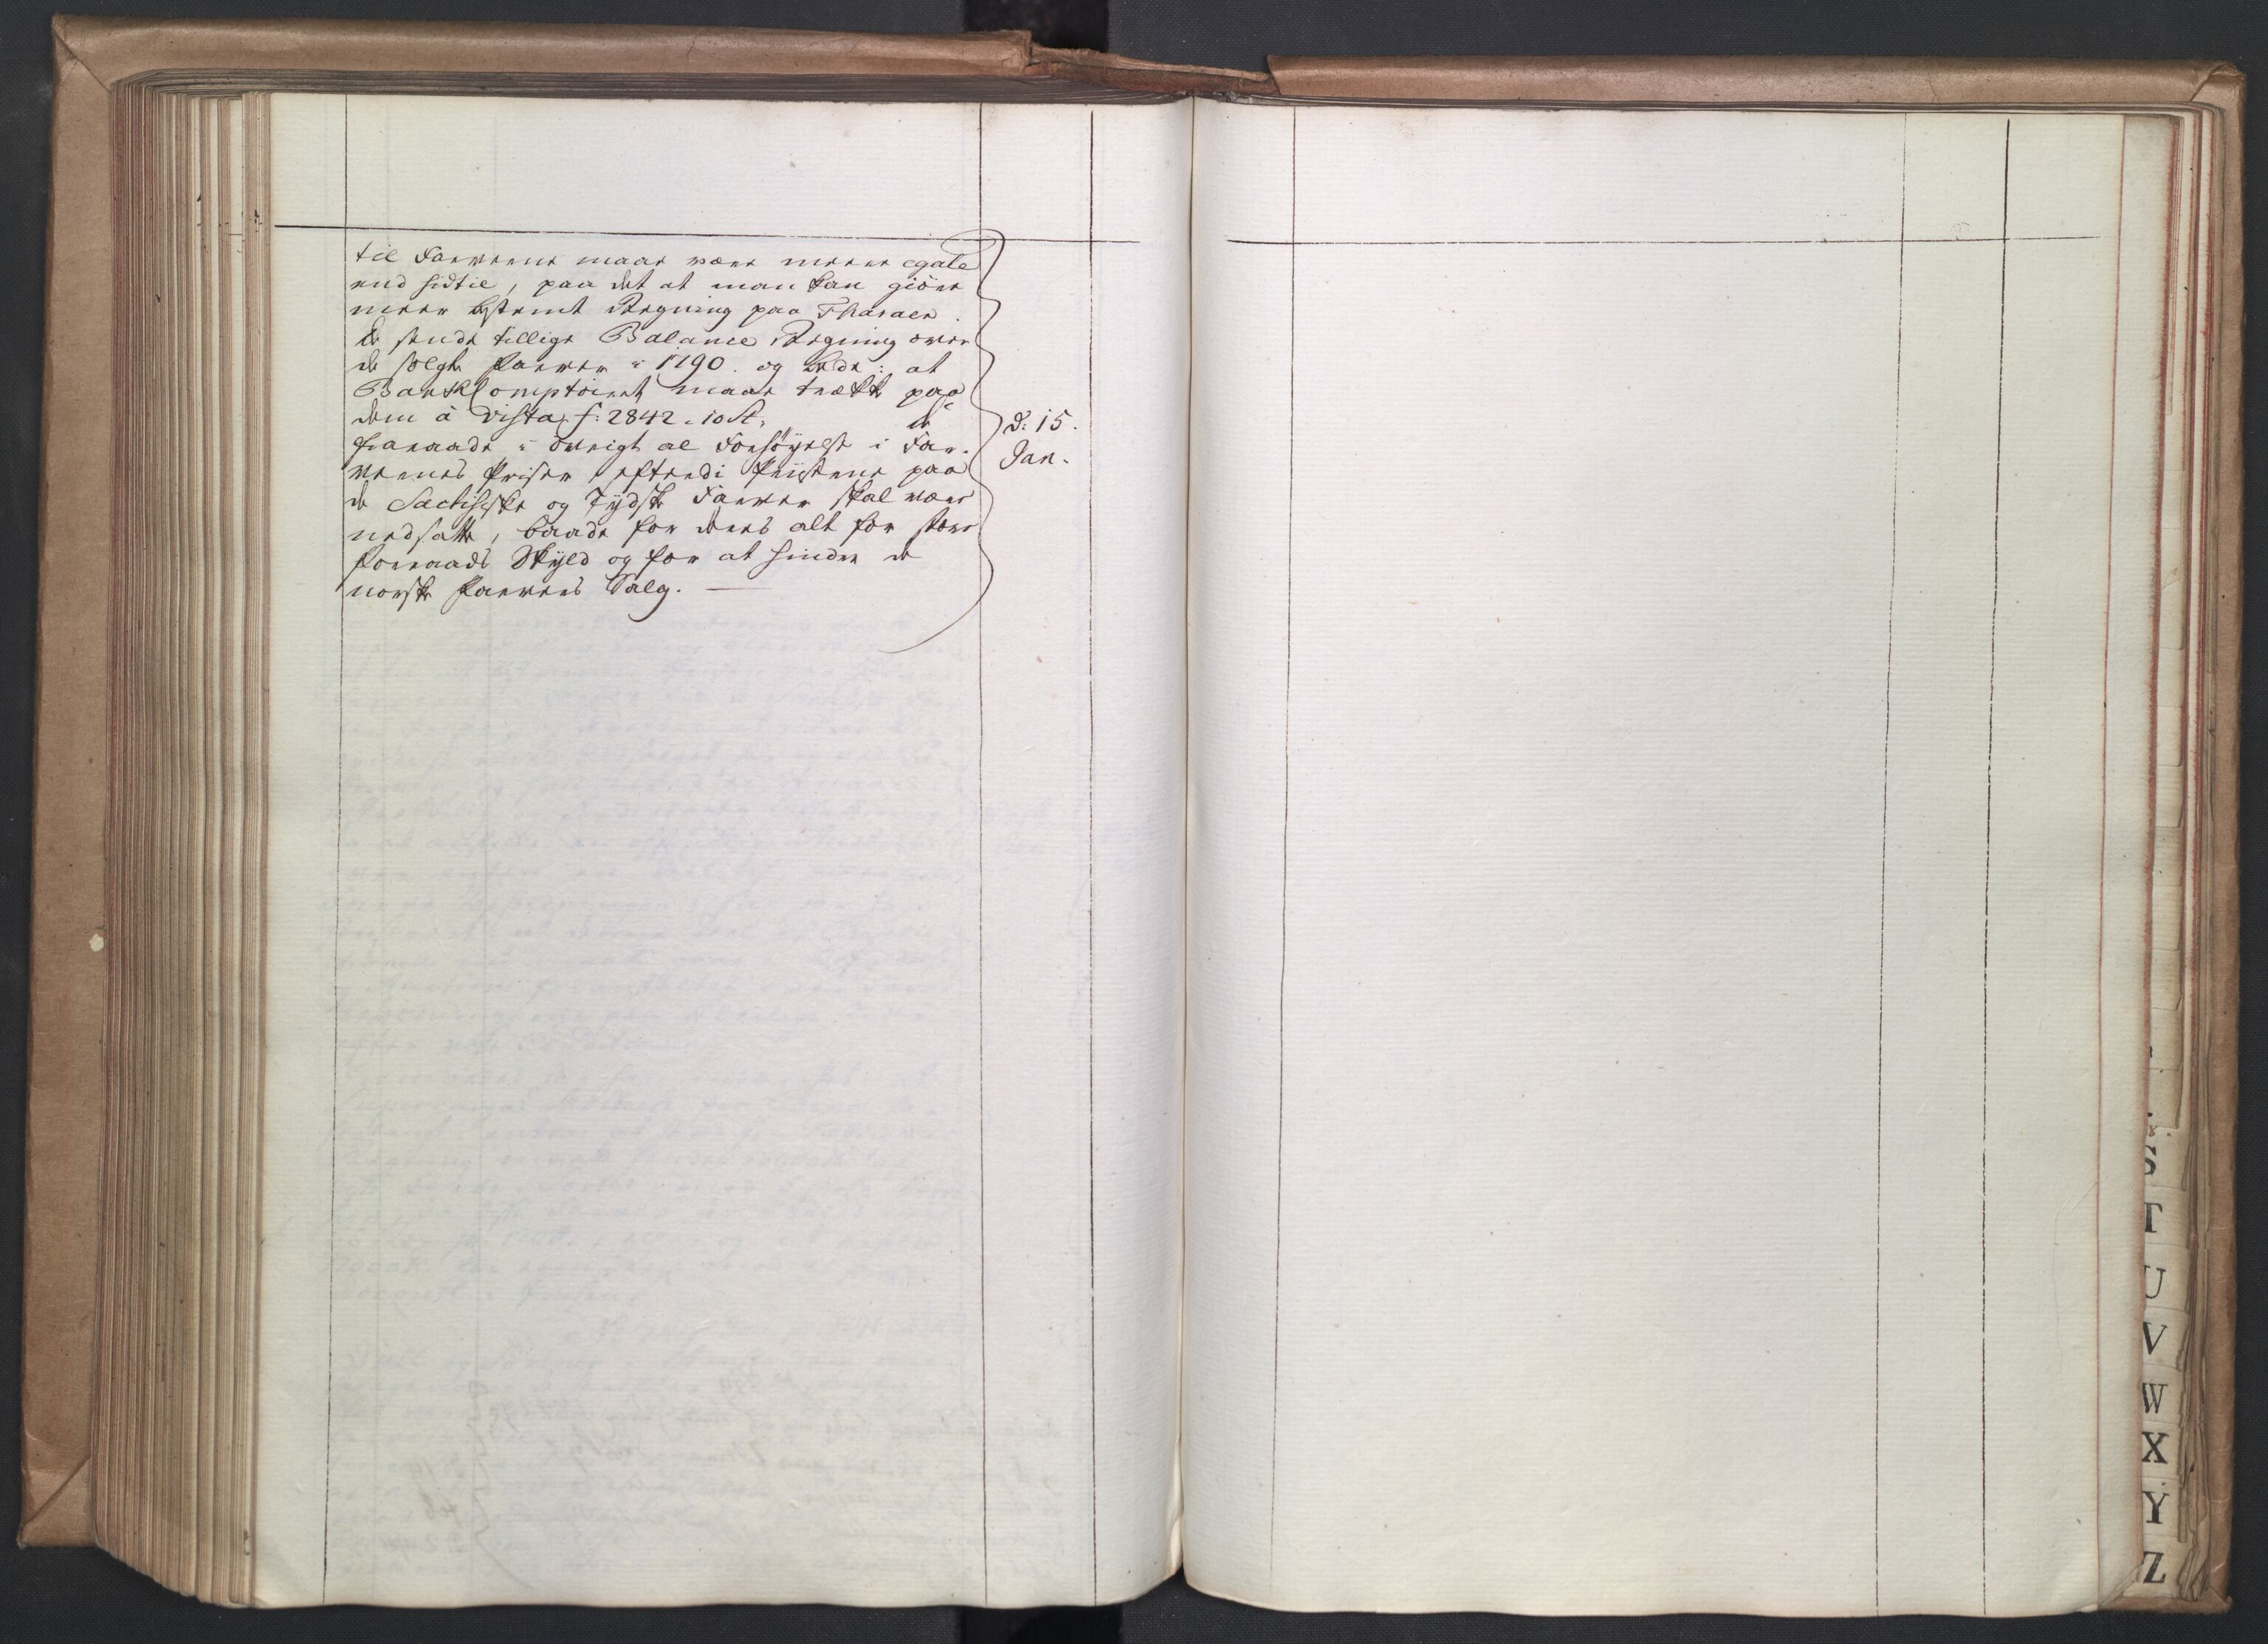 til Farverne maae være meere egale
end hidtil, paa det at man kan giöre
meere bestemt Regning paa Tharaen.
De sende tillige Balance Regning over
de solgte Farver i 1790. og bede: at
BankComptoiret maae trække paa
dem á vista f: 2842 " 10 St.
De
fraraade i övrigt al Forhöyelse i Far-
vernes Priser, efterdi Prisene paa
de Sachsiske og Tydske Farver skal være
nedsatte, baade for deres alt for store
Forraads Skyld og for at hindre de
norske Farvers Salg. —
D: 15.
Jan.
S
T
U
V
W
X
Y
Z